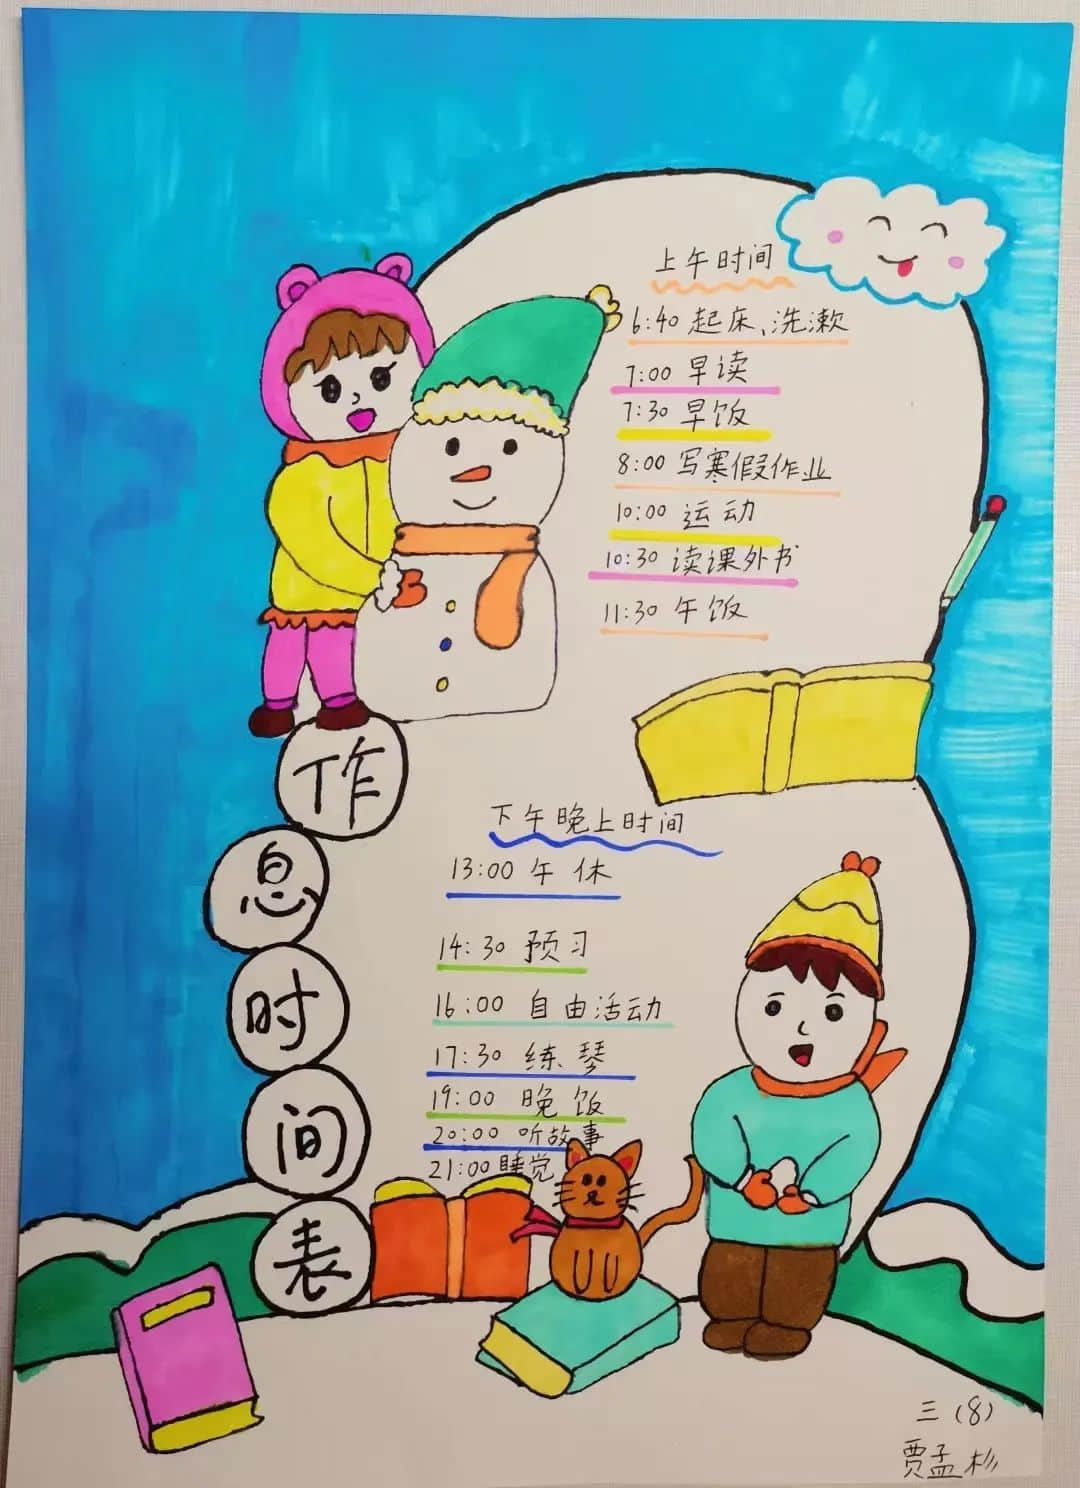 上午时间
6:40 起床、洗漱
7:00 早读
7:30 早饭
8:00 写寒假作业
10:00 运动
10:30 读课外书
11:30 午饭
作息时间表
下午晚上时间
13:00 午休
14:30 预习
16:00 自由活动
17:30 练琴
19:00 晚饭
20:00 听故事
21:00 睡觉
三(8)
贾孟杉